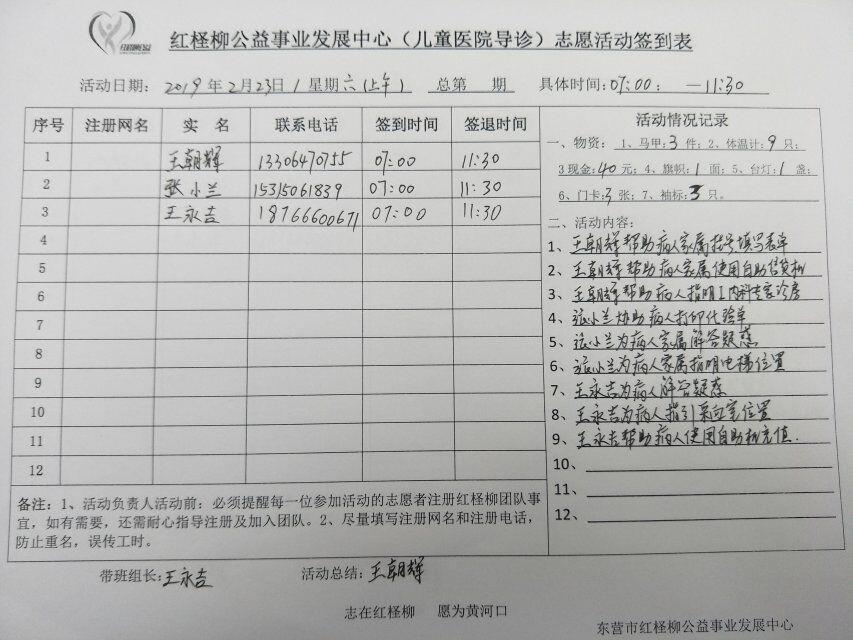 红柽柳公益事业发展中心（儿童医院导诊）志愿活动签到表
活动日期：2019年2月23日/星期六(上午) 总第 期 具体时间：07:00：—11:30
序号 注册网名 实 名 联系电话 签到时间 签退时间
1 王朝辉 13306470755 07:00 11:30
2 张小兰 15315061839 07:00 11:30
3 王永吉 18766600671 07:00 11:30
4
5
6
7
8
9
10
11
12
活动情况记录
一、物资：1、马甲：3件；2、体温计：9只；
3现金：40元；4、旗帜：1面；5、台灯：1盏；
6、门卡：3张；7、袖标：3只。
二、活动内容：
1、王朝辉帮助病人家属挂号填写表单
2、王朝辉帮助病人家属使用自助售货机
3、王朝辉帮助病人指明内科专家诊房
4、张小兰协助病人打印化验单
5、张小兰为病人家属解答疑惑
6、张小兰为病人家属指明电梯位置
7、王永吉为病人解答疑惑
8、王永吉为病人指引采血室位置
9、王永吉帮助病人使用自助机充值.
10、
11、
12、
备注：1、活动负责人活动前：必须提醒每一位参加活动的志愿者注册红柽柳团队事
宜，如有需要，还需耐心指导注册及加入团队。2、尽量填写注册网名和注册电话，
防止重名，误传工时。
带班组长：王永吉 活动总结：王朝辉
志在红柽柳 愿为黄河口
东营市红柽柳公益事业发展中心